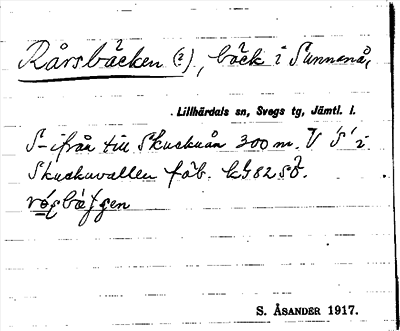 Rårsbäcken (?), bäck i Sunnanå,
Lillhärdals sn, Svegs tg, Jämtl. l.
S-ifrån till Skuskuån 300 m. V i
Skuskuvallen fäb. kG82SÖ.
S. ÅSANDER 1917.